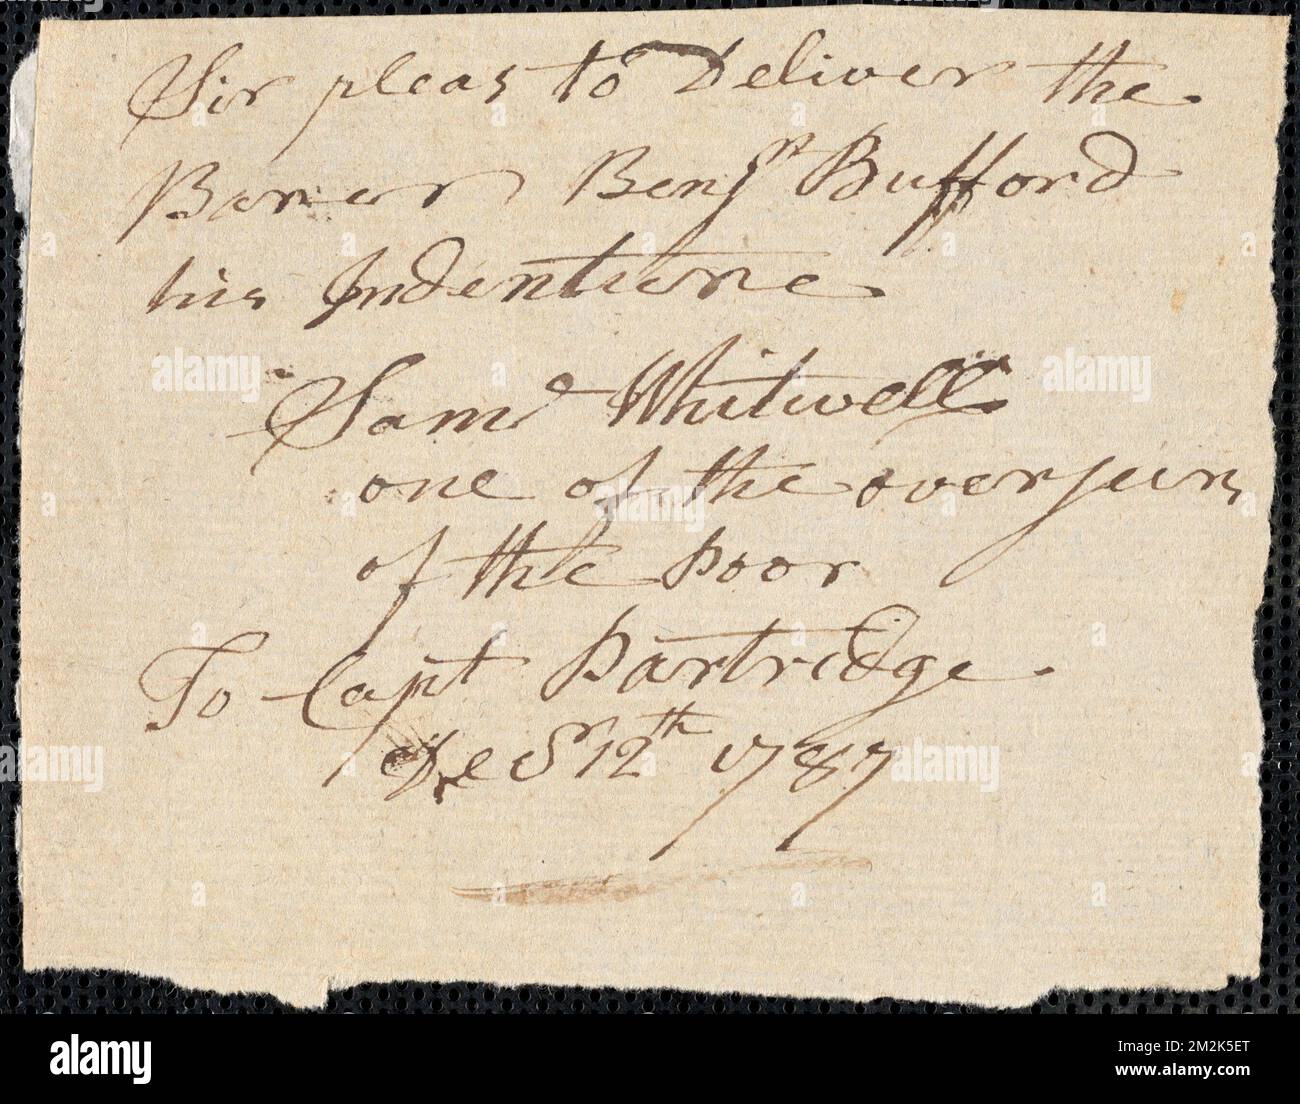 Sir pleas to Deliver the
Barer Benjn Bufford
his Indenture
Samel Whitwell
one of the overseurs
of the poor
To Capt Partridge
Decr 12th 1787
alamy
Image ID: 2M2K5ET
www.alamy.com